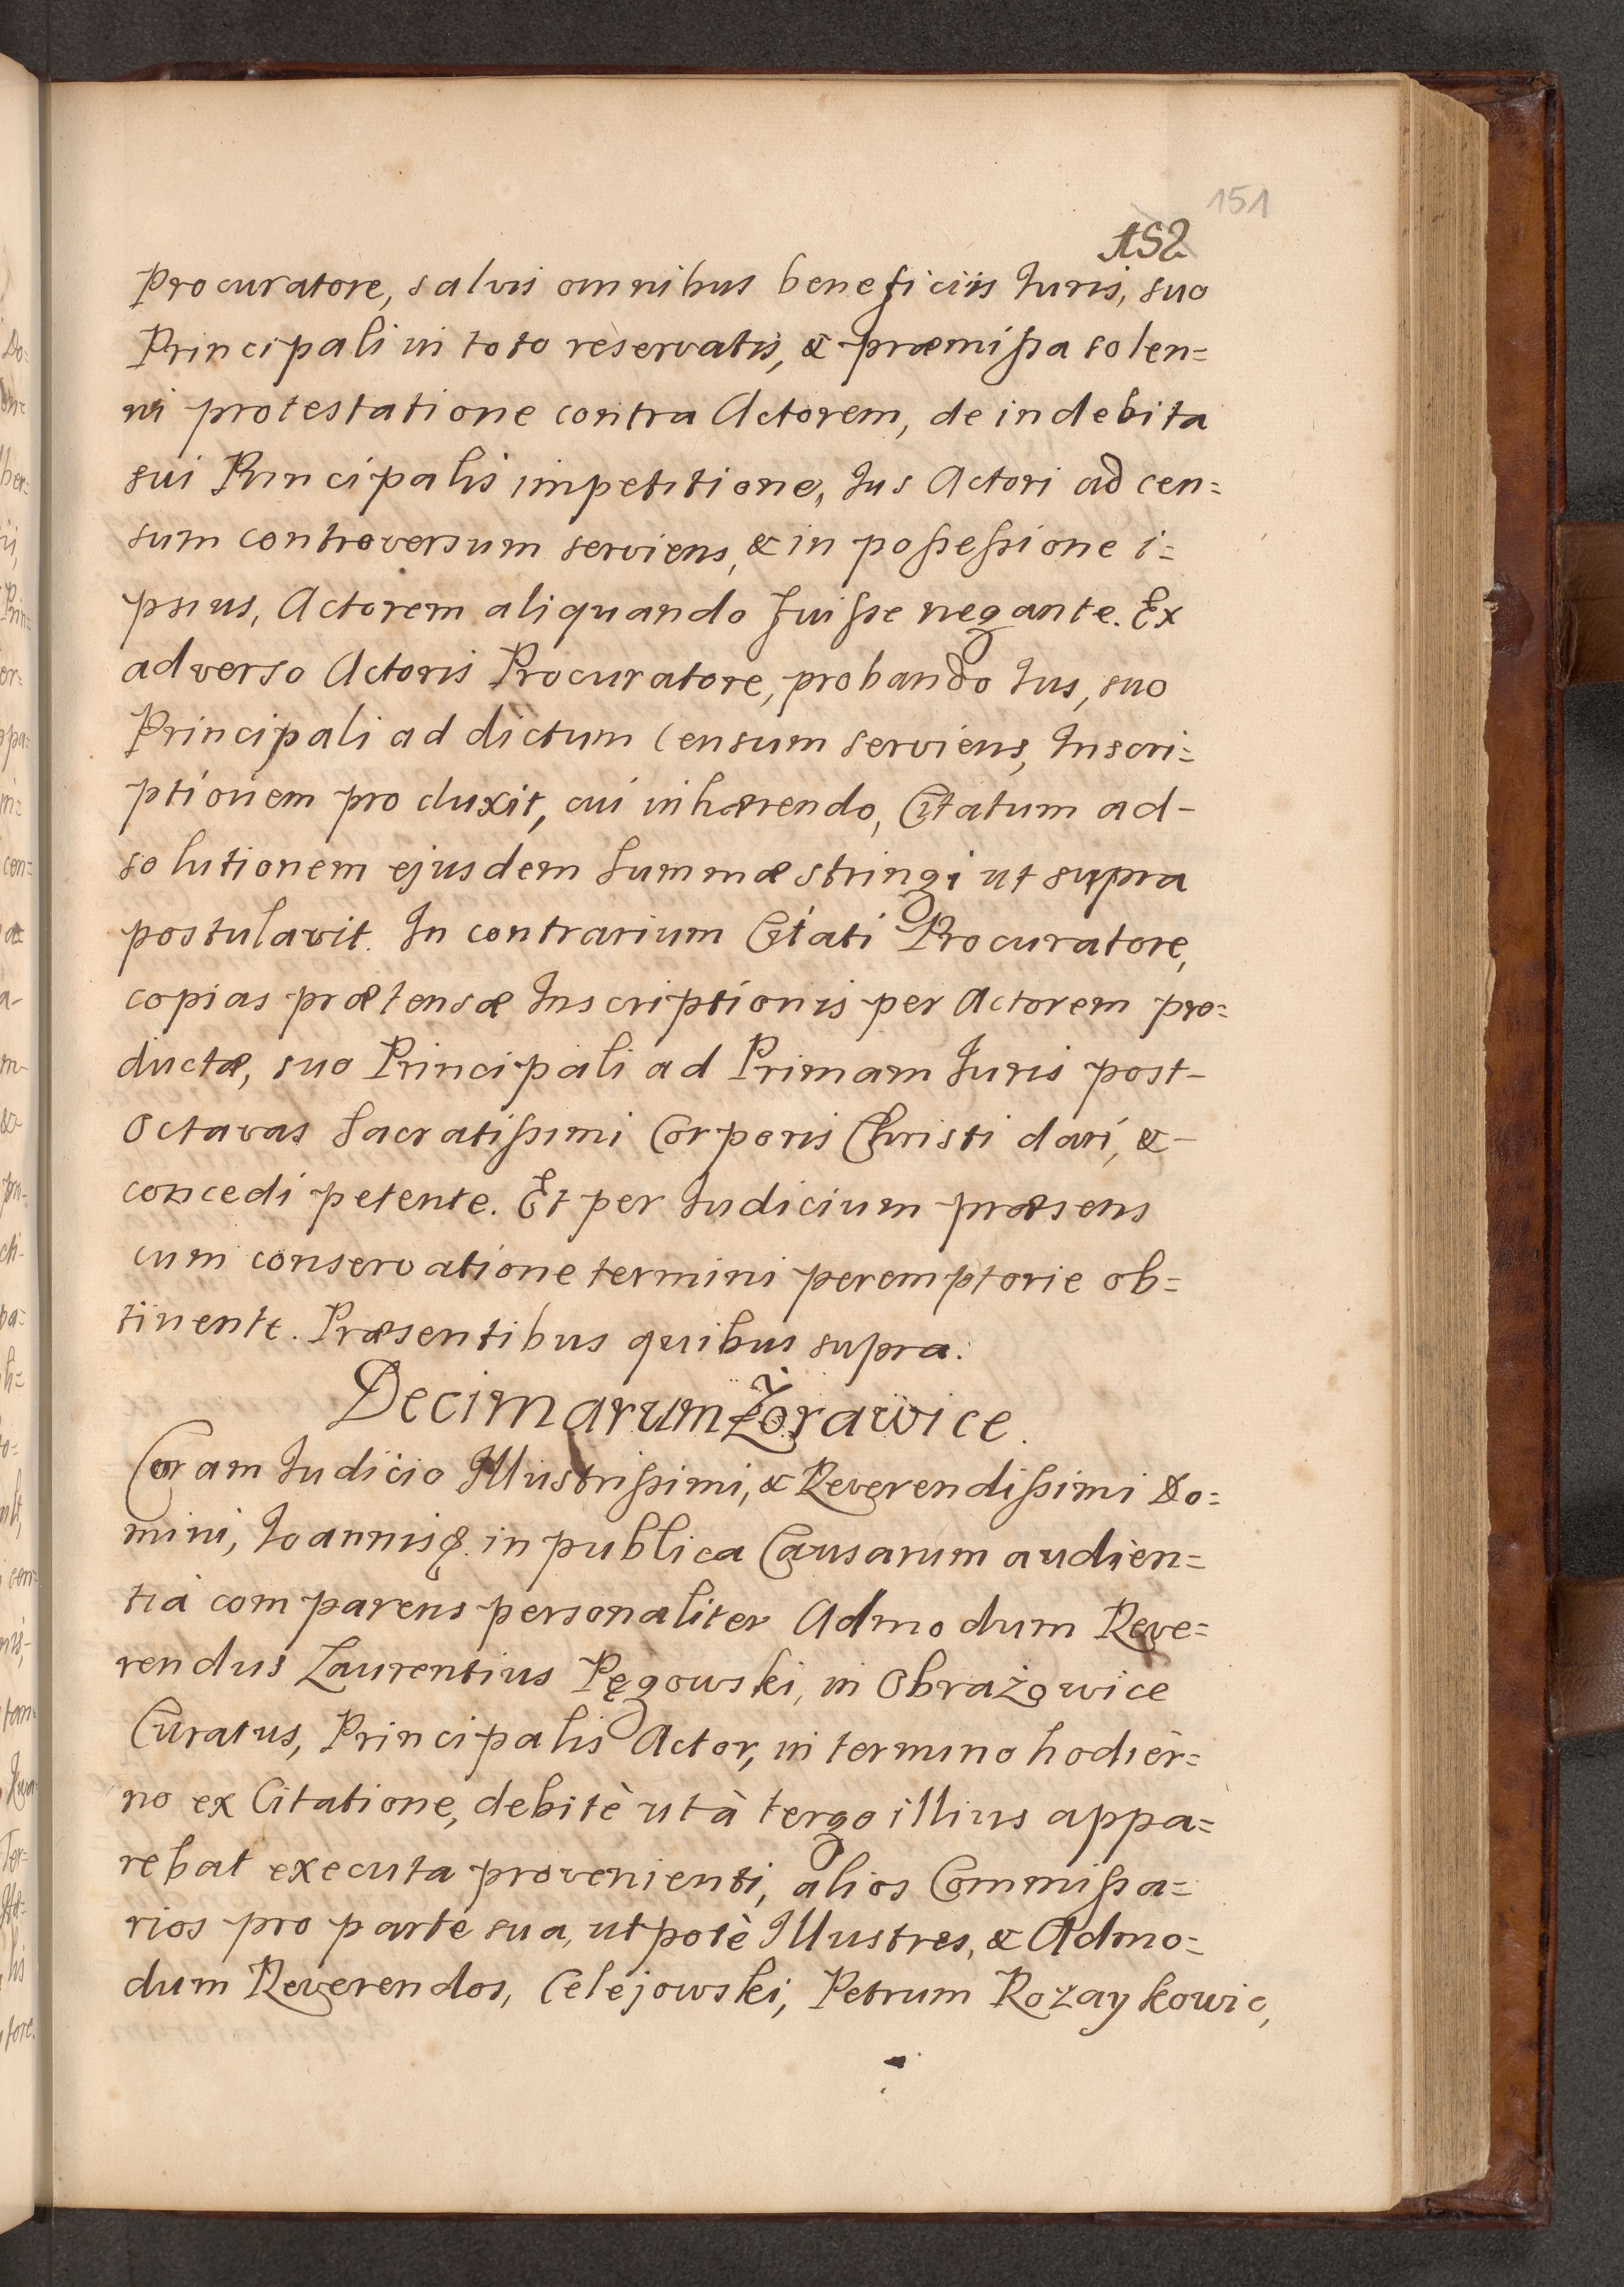 151
152
Procuratore, salvis omnibus beneficiis Iuris, suo
Principali in toto reservatis, & præmissa solen=
ni protestatione contra Actorem, de indebita
sui Principalis impetitione, Ius Actori ad cen=
sum controversum serviens, & in possessione i=
psius, Actorem aliquando fuisse negante. Ex
adverso Actoris Procuratore, probando Ius, suo
Principali ad dictum Censum serviens, Inscri=
ptionem produxit, cui inhærendo, Citatum ad-
solutionem ejusdem Summæ stringi ut supra
postulavit. In contrarium Citati Procuratore,
copias prætensæ Inscriptionis per Actorem pro=
ductæ, suo Principali ad Primam Iuris post-
Octavas Sacratissimi Corporis Christi dari, &-
concedi petente. Et per Iudicium præsens
cum conservatione termini peremptorie ob=
tinente. Præsentibus quibus supra.
Decimarum Żorawice.
Coram Iudicio Illustrissimi, & Reverendissimi Do=
mini, Ioannis &. in publica Causarum audien=
tia comparens personaliter Admodum Reve=
rendus Laurentius Pęgowski, in Obrażowice
Curatus, Principalis Actor, in termino hodier=
no ex Citatione, debitè ut à tergo illius appa=
rebat executa provenienti, alios Commissa=
rios pro parte sua, utpotè Illustres, & Admo=
dum Reverendos, Celejowski, Petrum Rozaykowic,